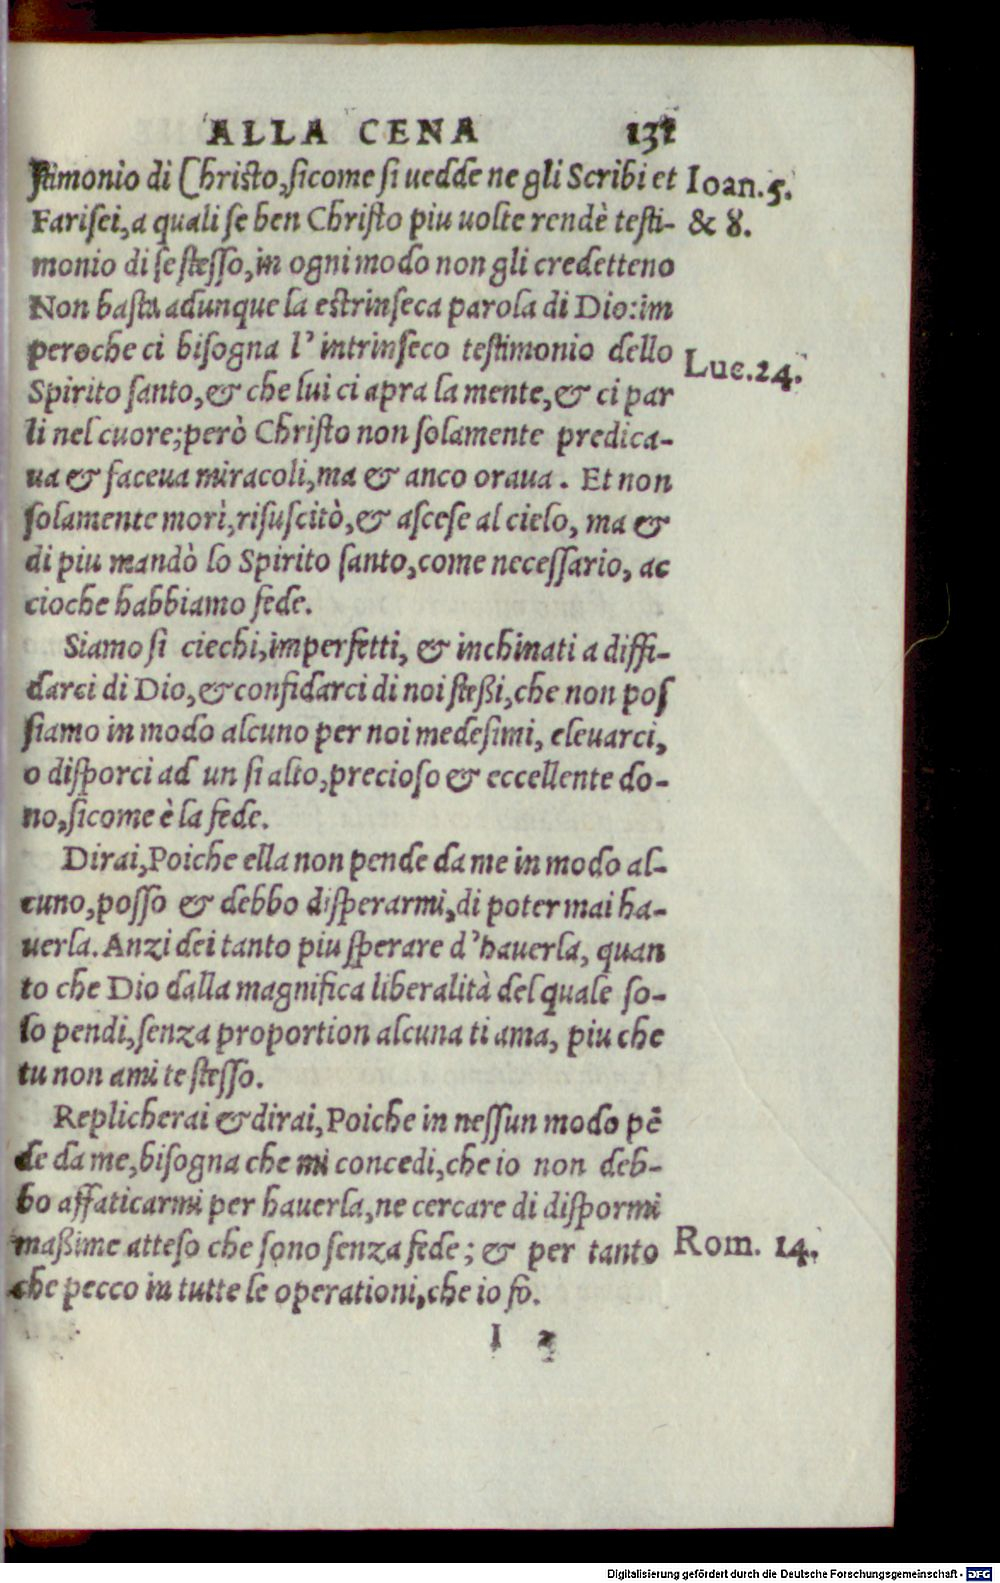 ALLA CENA 131
ſtimonio di Chriſto, ſicome ſi uedde ne gli Scribi et
Ioan. 5.
Fariſei, a quali ſe ben Chriſto piu uolte rendè teſti-
& 8.
monio di ſe ſteſſo, in ogni modo non gli credetteno
Non baſta adunque la eſtrinſeca parola di Dio: im
peroche ci biſogna l' intrinſeco teſtimonio dello
Luc. 24.
Spirito ſanto, & che lui ci apra la mente, & ci par
li nel cuore; però Chriſto non ſolamente predica-
ua & faceua miracoli, ma & anco oraua. Et non
ſolamente morì, riſuſcitò, & aſceſe al cielo, ma &
di piu mandò lo Spirito ſanto, come neceſſario, ac
cioche habbiamo fede.
Siamo ſi ciechi, imperfetti, & inchinati a diffi-
darci di Dio, & confidarci di noi ſteßi, che non poſ
ſiamo in modo alcuno per noi medeſimi, eleuarci,
o diſporci ad un ſi alto, precioſo & eccellente do-
no, ſicome è la fede.
Dirai, Poiche ella non pende da me in modo al-
cuno, poſſo & debbo diſperarmi, di poter mai ha-
uerla. Anzi dei tanto piu ſperare d'hauerla, quan
to che Dio dalla magnifica liberalità del quale ſo-
lo pendi, ſenza proportion alcuna ti ama, piu che
tu non ami te ſteſſo.
Replicherai & dirai, Poiche in neſſun modo pē
de da me, biſogna che mi concedi, che io non deb-
bo affaticarmi per hauerla, ne cercare di diſpormi
maßime atteſo che ſono ſenza fede; & per tanto
Rom. 14.
che pecco in tutte le operationi, che io fo.
I 3
Digitalisierung gefördert durch die Deutsche Forschungsgemeinschaft - DFG